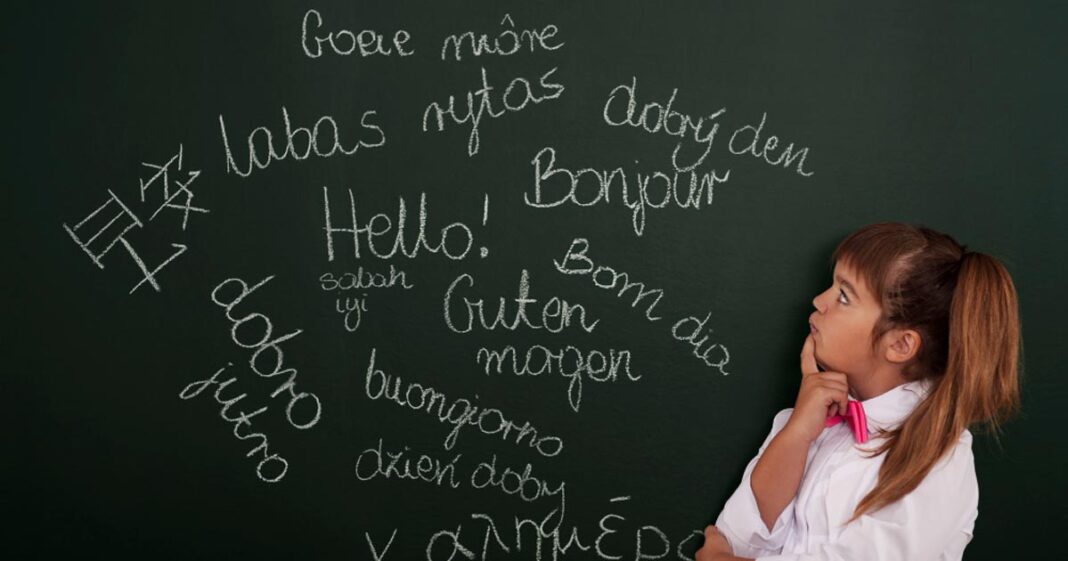 Goeie môre
labas rytas
dobrý den
Bonjour
Hello!
sabah
iyi
Bom dia
Guten
mogen
dobro
jutro
buongiorno
dzień doby